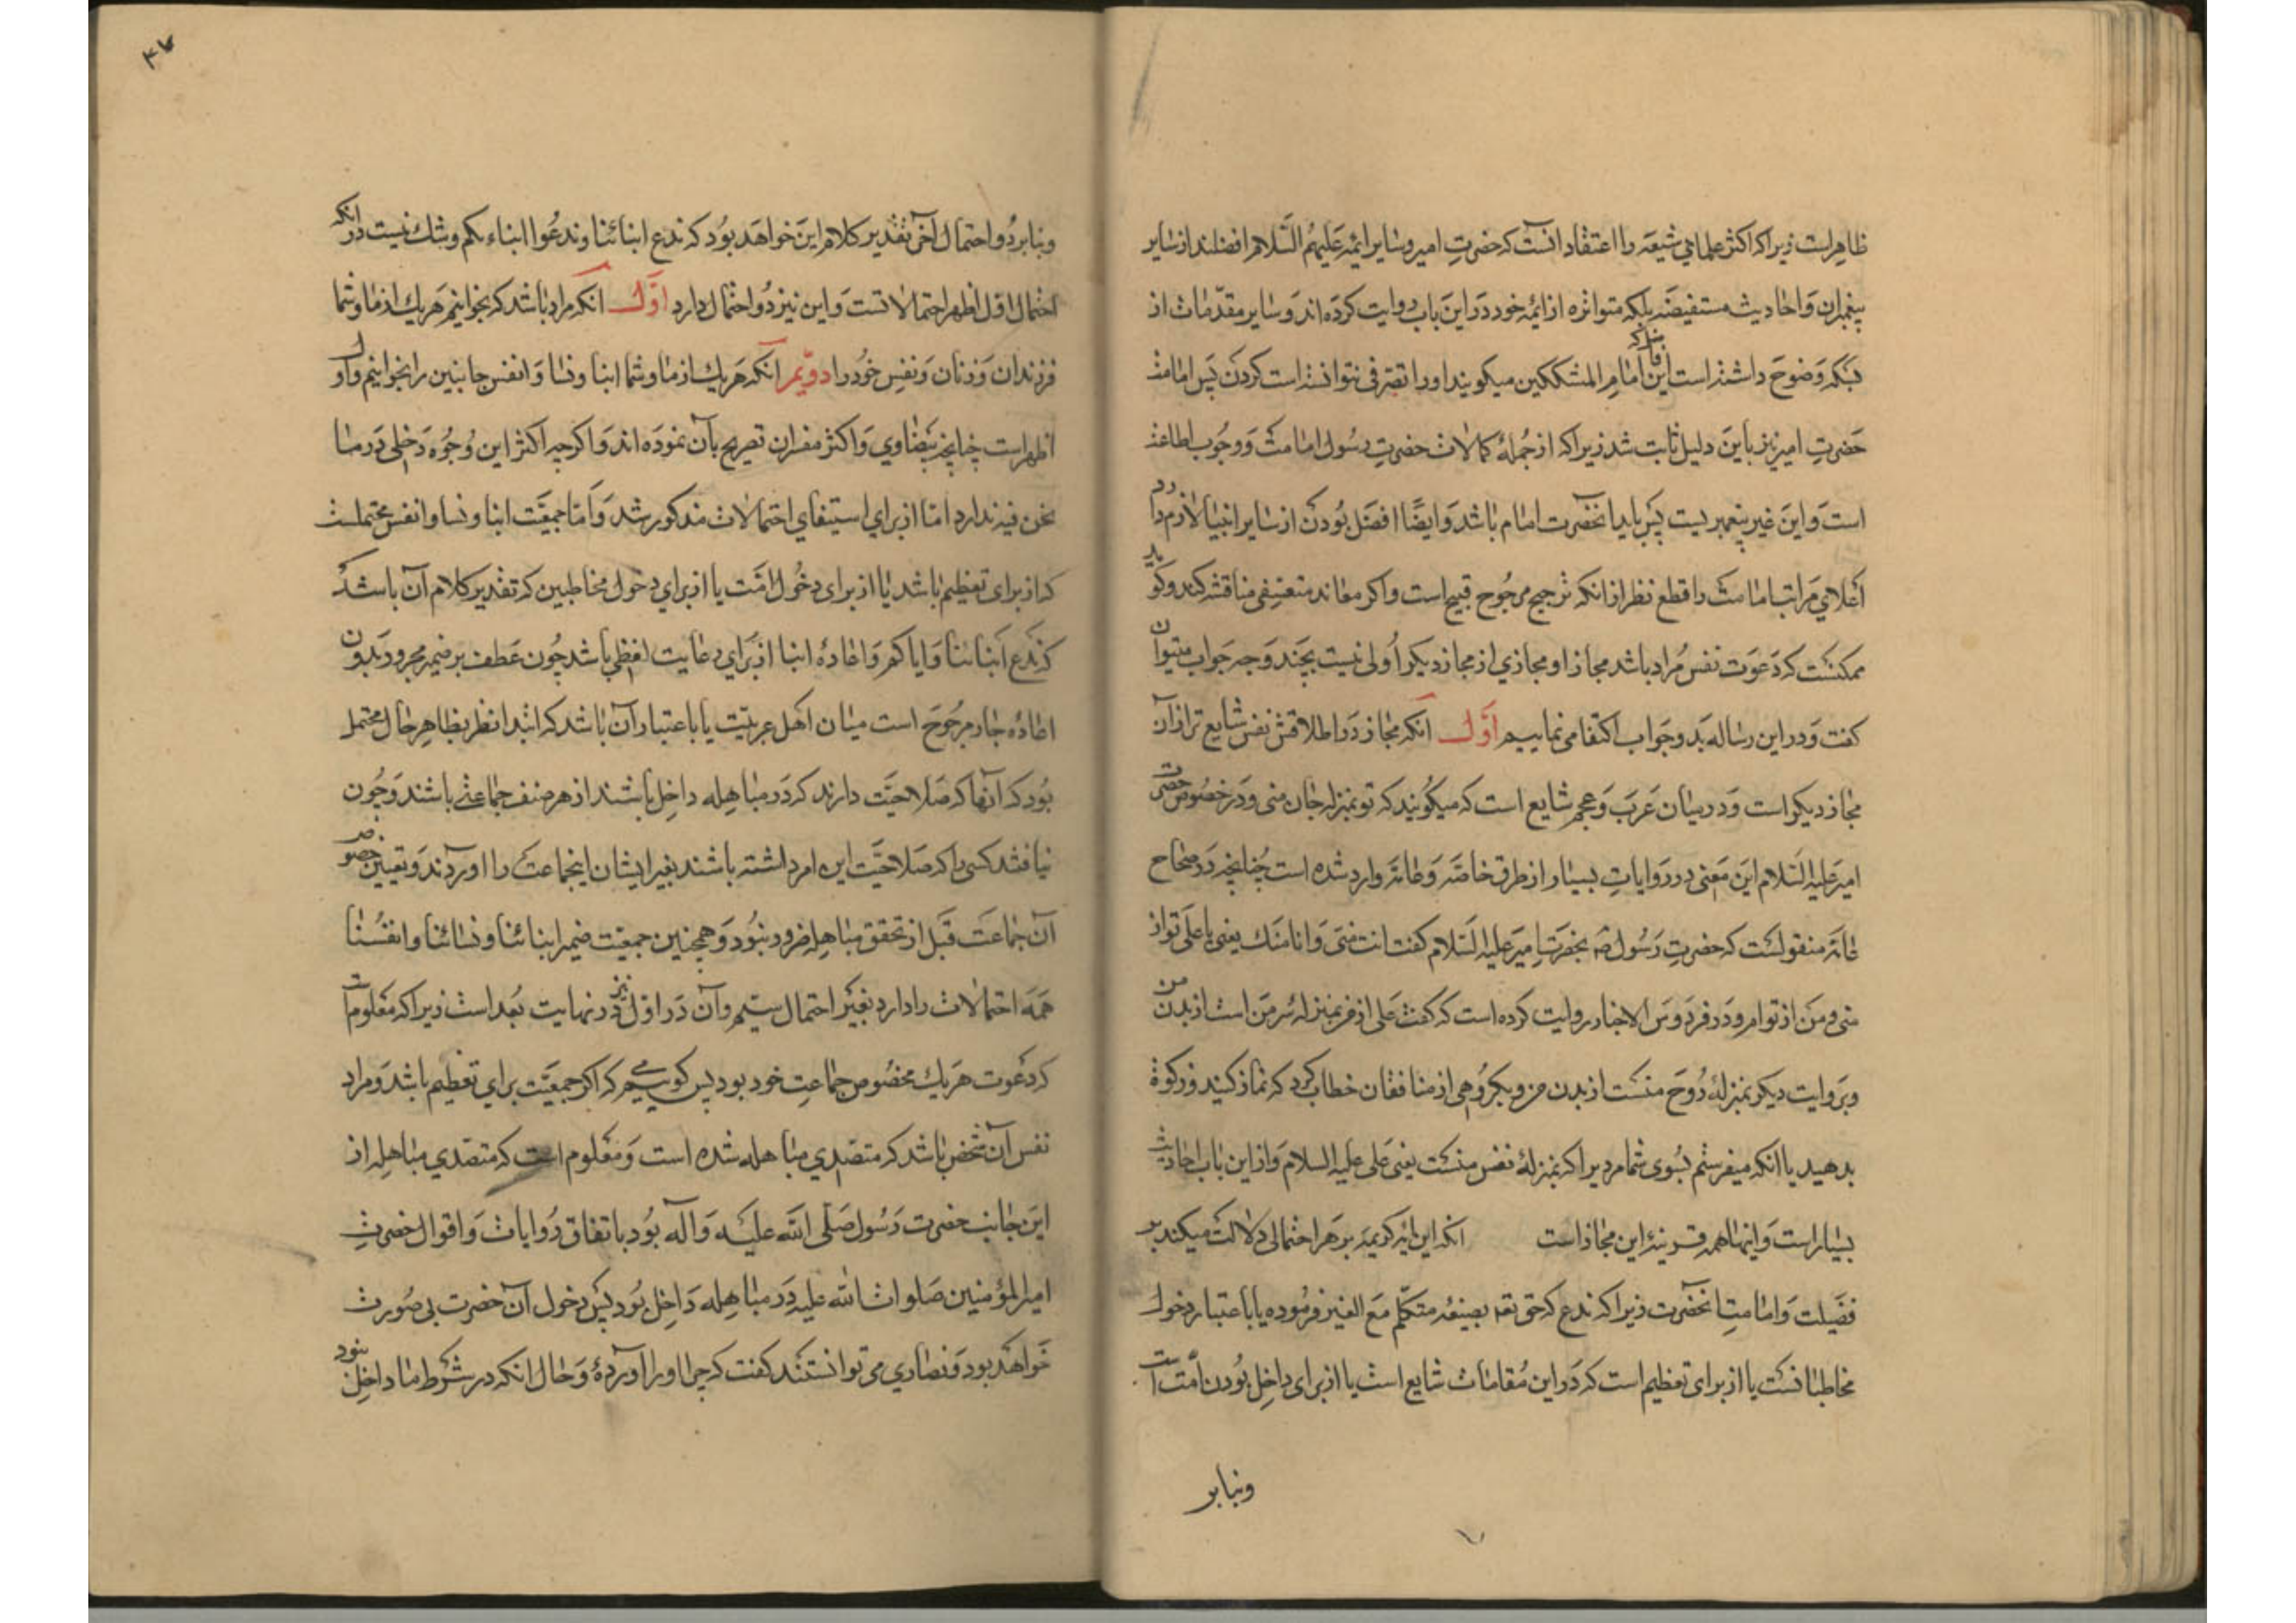 ظاهرست زیرا که اکثر علمای شیعه را اعتقاد آنست که حضرت امیر و سایر ائمه علیهم السلام افضلند از سایر
پیغمبران و احادیث مستفیضه بلکه متواتره از ائمه خود در این باب روایت کرده اند و سایر مقدمات از
بس که وضوح داشته است این فاضل که امام المشککین میگویند او را تصرفی نتوانسته است کردن پس امامت
حضرت امیر نیز باین دلیل ثابت شد زیرا که از جملهٔ کمالات حضرت رسول امامت و وجوب اطاعت
است و این غیر پیغمبریست پس باید آنحضرت امام باشد و ایضا افضل بودن از سایر انبیا لازم دارد
اعلای مراتب امامت را قطع نظر از آنکه ترجیح مرجوح قبیح است و اکر معاند متعسفی مناقشه کند و کوید
ممکنست که دعوت نفس مراد باشد مجازا و مجازی از مجاز دیکر اولی نیست بچند وجه جواب میتوان
کفت و در این رساله بدو جواب اکتفا می نماییم اول آنکه مجاز در اطلاقش نفس شایع تر از آن
مجاز دیکر است و در میان عرب و عجم شایع است که میکویند که تو بمنزله جان منی و در خصوص حضرت
امیر علیه السلام این معنی در روایات بسیار از طرق خاصه و عامه وارد شده است چنانچه در صحاح
عامه منقولست که حضرت رسول ص بحضرت امیر علیه السلام کفت انت منی و انا منک یعنی یا علی تو از
منی و من از توام و در فردوس الاخبار روایت کرده است که کفت علی از من بمنزله سر من است از بدن من
و بروایت دیکر بمنزلهٔ روح منست از بدن من و بکروهی از منافقان خطاب کرد که نماز کنید و زکوة
بدهید یا آنکه میفرستم بسوی شما مردیرا که بمنزلهٔ نفس منست یعنی علی علیه السلام و از این باب احادیث
بسیار است و اینها همه قرینهٔ این مجاز است آنکه این آیه کریمه بر هر احتمالی دلالت میکند بر
فضیلت و امامت آنحضرت زیرا که ندع که حق تعه بصیغه متکلم مع الغیر فرموده یا باعتبار دخول
مخاطبانست یا از برای تعظیم است که در این مقامات شایع است یا از برای داخل بودن امت است
وبنابر
۴۷
وبنابر دو احتمال آخر تقدیر کلام این خواهد بود که ندع ابنائنا و ندعوا ابناءکم و شک نیست در آنکه
احتمال اول اظهر احتمالاتست و این نیز دو احتمال دارد اول آنکه مراد باشد که بخوانیم هریک از ما و شما
فرزندان و زنان و نفس خود را دویم آنکه هریک از ما و شما ابنا و نسا و انفس جانبین را بخوانیم و اول
اظهر است چنانچه بیضاوی و اکثر مفسران تصریح بآن نموده اند و اکرچه اکثر این وجوه دخلی در ما
نحن فیه ندارد اما از برای استیفای احتمالات مذکور شد و اما جمعیت ابنا و نسا و انفس محتملست
که از برای تعظیم باشد یا از برای دخول امت یا از برای دخول مخاطبین که تقدیر کلام آن باشد که
که ندع ابنائنا و ایاکم و اعادهٔ ابنا از برای رعایت لفظی باشد چون عطف بر ضمیر مجرور بدون
اعادهٔ جار مرجوح است میان اهل عربیت یا باعتبار آن باشد که ابتدا نظر بظاهر حال محتمل
بود که آنها که صلاحیت دارند که در مباهله داخل باشند از هر صنف جماعتی باشند و چون
نیافتند کسی را که صلاحیت این امر داشته باشند بغیر ایشان اینجماعت را آوردند و تعیین خصوص
آن جماعت قبل از تحقق مباهله ضرور نبود و همچنین جمعیت ضمیر ابنائنا و نسائنا و انفسنا
همه احتمالات را دارد بغیر احتمال سیم و آن در اول نیز در نهایت بعد است زیرا که معلومست
که دعوت هریک مخصوص جماعت خود بود پس کوییم که اکر جمعیت برای تعظیم باشد و مراد
نفس آن شخص باشد که متصدی مباهله شده است و معلوم است که متصدی مباهله از
این جانب حضرت رسول صلی الله علیه و آله بود باتفاق روایات و اقوال حضرت
امیر المؤمنین صلوات الله علیه در مباهله داخل بود پس دخول آن حضرت بی صورت
خواهد بود و نصاری می توانستند کفت که چرا او را آوردهٔ و حال آنکه در شرط ما داخل نبود